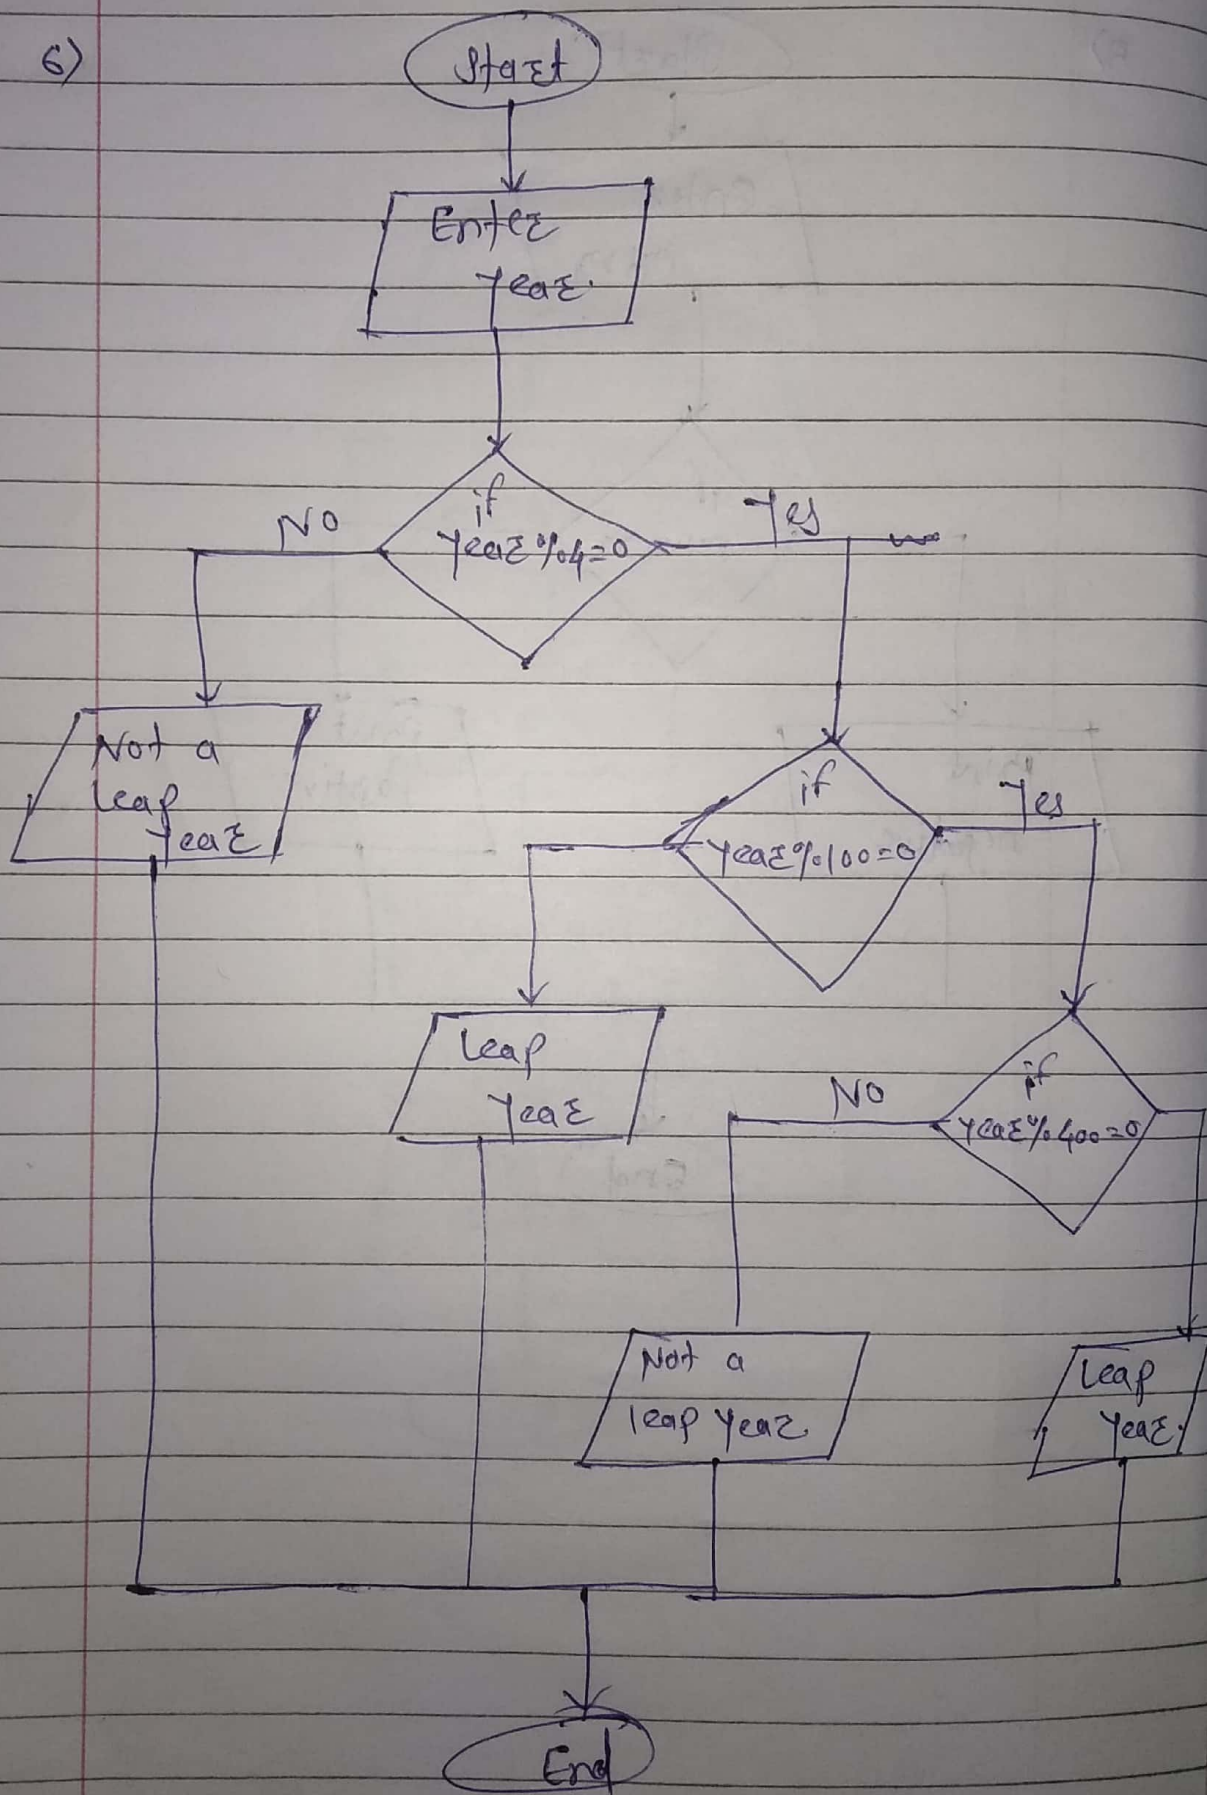 6)
Start
Enter
year.
if
year%4=0
No
Yes
Not a
leap
year
if
year%100=0
Yes
leap
year
if
year%400=0
No
Not a
leap year.
leap
year.
End